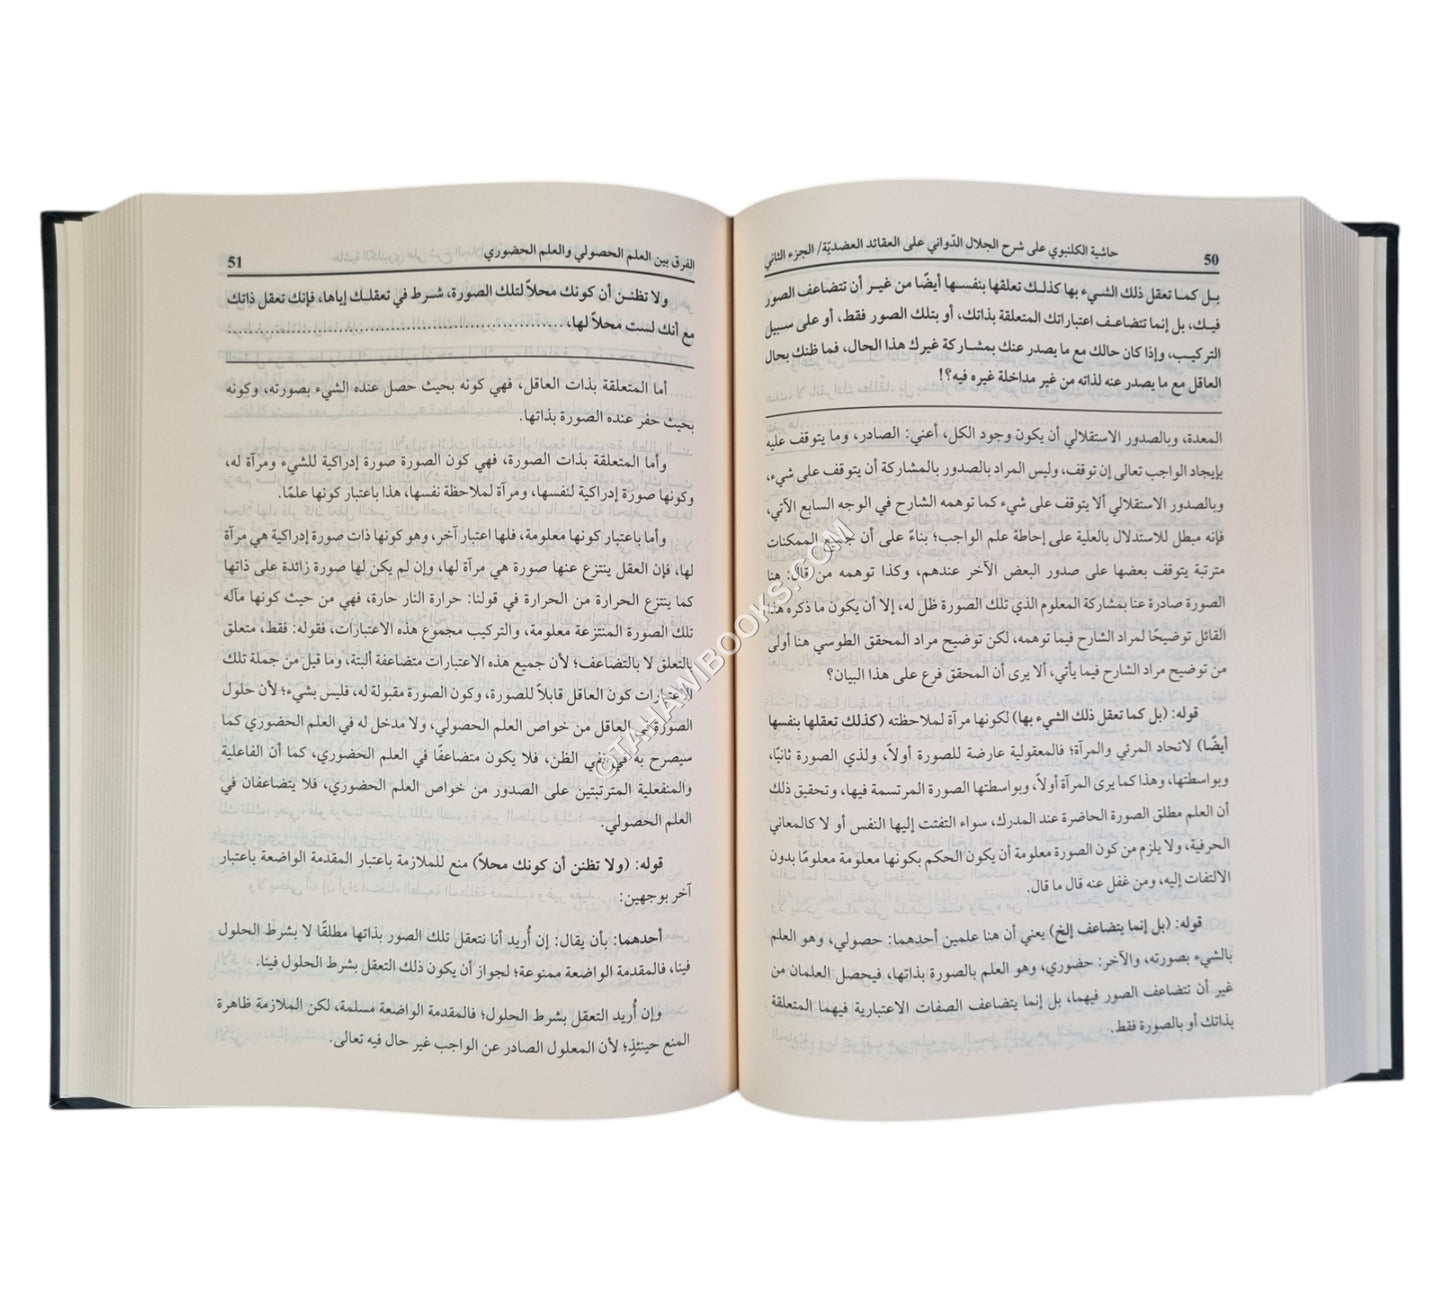 50
حاشية الكلنبوي على شرح الجلال الدّواني على العقائد العضديّة/ الجزء الثاني
بـل كمـا تعقل ذلك الشـيء بها كذلـك تعلقها بنفسـها أيضًا من غيـر أن تتضاعف الصور
فيـك، بل إنما تتضاعـف اعتباراتك المتعلقة بذاتك، أو بتلك الصور فقط، أو على سـبيل
التركيـب، وإذا كان حالك مع ما يصدر عنك بمشـاركة غيرك هذا الحال، فما ظنك بحال
العاقل مع ما يصدر عنه لذاته من غير مداخلة غيره فيه؟!
المعدة، وبالصدور الاستقلالي أن يكون وجود الكل، أعني: الصادر، وما يتوقف عليه
بإيجاد الواجب تعالى إن توقف، وليس المراد بالصدور بالمشاركة أن يتوقف على شيء،
وبالصدور الاستقلالي ألا يتوقف على شيء كما توهمه الشارح في الوجه السابع الآتي،
فإنه مبطل للاستدلال بالعلية على إحاطة علم الواجب؛ بناءً على أن جميع الممكنات
مترتبة يتوقف بعضها على صدور البعض الآخر عندهم، وكذا توهمه من قال: هنا
الصورة صادرة عنا بمشاركة المعلوم الذي تلك الصورة ظل له، إلا أن يكون ما ذكره هذا
القائل توضيحًا لمراد الشارح فيما توهمه، لكن توضيح مراد المحقق الطوسي هنا أولى
من توضيح مراد الشارح فيما يأتي، ألا يرى أن المحقق فرع على هذا البيان؟
قوله: (بل كما تعقل ذلك الشيء بها) لكونها مرآة لملاحظته (كذلك تعقلها بنفسها
أيضًا) لاتحاد المرئي والمرآة؛ فالمعقولية عارضة للصورة أولاً، ولذي الصورة ثانيًا،
وبواسطتها، وهذا كما يرى المرآة أولاً، وبواسطتها الصورة المرتسمة فيها، وتحقيق ذلك
أن العلم مطلق الصورة الحاضرة عند المدرك، سواء التفتت إليها النفس أو لا كالمعاني
الحرفية، ولا يلزم من كون الصورة معلومة أن يكون الحكم بكونها معلومة معلومًا بدون
الالتفات إليه، ومن غفل عنه قال ما قال.
قوله: (بل إنما يتضاعف إلخ) يعني أن هنا علمين أحدهما: حصولي، وهو العلم
بالشيء بصورته، والآخر: حضوري، وهو العلم بالصورة بذاتها، فيحصل العلمان من
غير أن تتضاعف الصور فيهما، بل إنما يتضاعف الصفات الاعتبارية فيهما المتعلقة
بذاتك أو بالصورة فقط.
الفرق بين العلم الحصولي والعلم الحضوري
51
ولا تظنـن أن كونك محلاً لتلك الصورة، شـرط في تعقلـك إياها، فإنك تعقل ذاتك
مع أنك لست محلاً لها،
أما المتعلقة بذات العاقل، فهي كونه بحيث حصل عنده الشيء بصورته، وكونه
بحيث حفر عنده الصورة بذاتها.
وأما المتعلقة بذات الصورة، فهي كون الصورة صورة إدراكية للشيء ومرآة له،
وكونها صورة إدراكية لنفسها، ومرآة لملاحظة نفسها، هذا باعتبار كونها علمًا.
وأما باعتبار كونها معلومة، فلها اعتبار آخر، وهو كونها ذات صورة إدراكية هي مرآة
لها، فإن العقل ينتزع عنها صورة هي مرآة لها، وإن لم يكن لها صورة زائدة على ذاتها
كما ينتزع الحرارة من الحرارة في قولنا: حرارة النار حارة، فهي من حيث كونها مآله
تلك الصورة المنتزعة معلومة، والتركيب مجموع هذه الاعتبارات، فقوله: فقط، متعلق
بالتعلق لا بالتضاعف؛ لأن جميع هذه الاعتبارات متضاعفة ألبتة، وما قيل من جملة تلك
الاعتبارات كون العاقل قابلاً للصورة، وكون الصورة مقبولة له، فليس بشيء؛ لأن حلول
الصورة في العاقل من خواص العلم الحصولي، ولا مدخل له في العلم الحضوري كما
سيصرح به في نفي الظن، فلا يكون متضاعفًا في العلم الحضوري، كما أن الفاعلية
والمنفعلية المترتبتين على الصدور من خواص العلم الحضوري، فلا يتضاعفان في
العلم الحصولي.
قوله: (ولا تظنن أن كونك محلاً) منع للملازمة باعتبار المقدمة الواضعة باعتبار
آخر بوجهين:
أحدهما: بأن يقال: إن أُريد أنا نتعقل تلك الصور بذاتها مطلقًا لا بشرط الحلول
فينا، فالمقدمة الواضعة ممنوعة؛ لجواز أن يكون ذلك التعقل بشرط الحلول فينا.
وإن أُريد التعقل بشرط الحلول؛ فالمقدمة الواضعة مسلمة، لكن الملازمة ظاهرة
المنع حينئذٍ؛ لأن المعلول الصادر عن الواجب غير حال فيه تعالى.
©TAHAWIBOOKS.COM